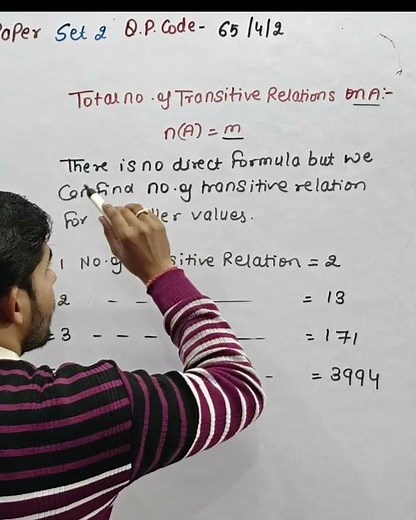 aper Set 2 Q.P. Code- 65/4/2
Total no. of Transitive Relations on A:-
n(A) = m
There is no direct formula but we
Can find no. of transitive relation
for ller values.
1 No. of sitive Relation = 2
2 - - = 13
= 3 - - - - = 171
- = 3994